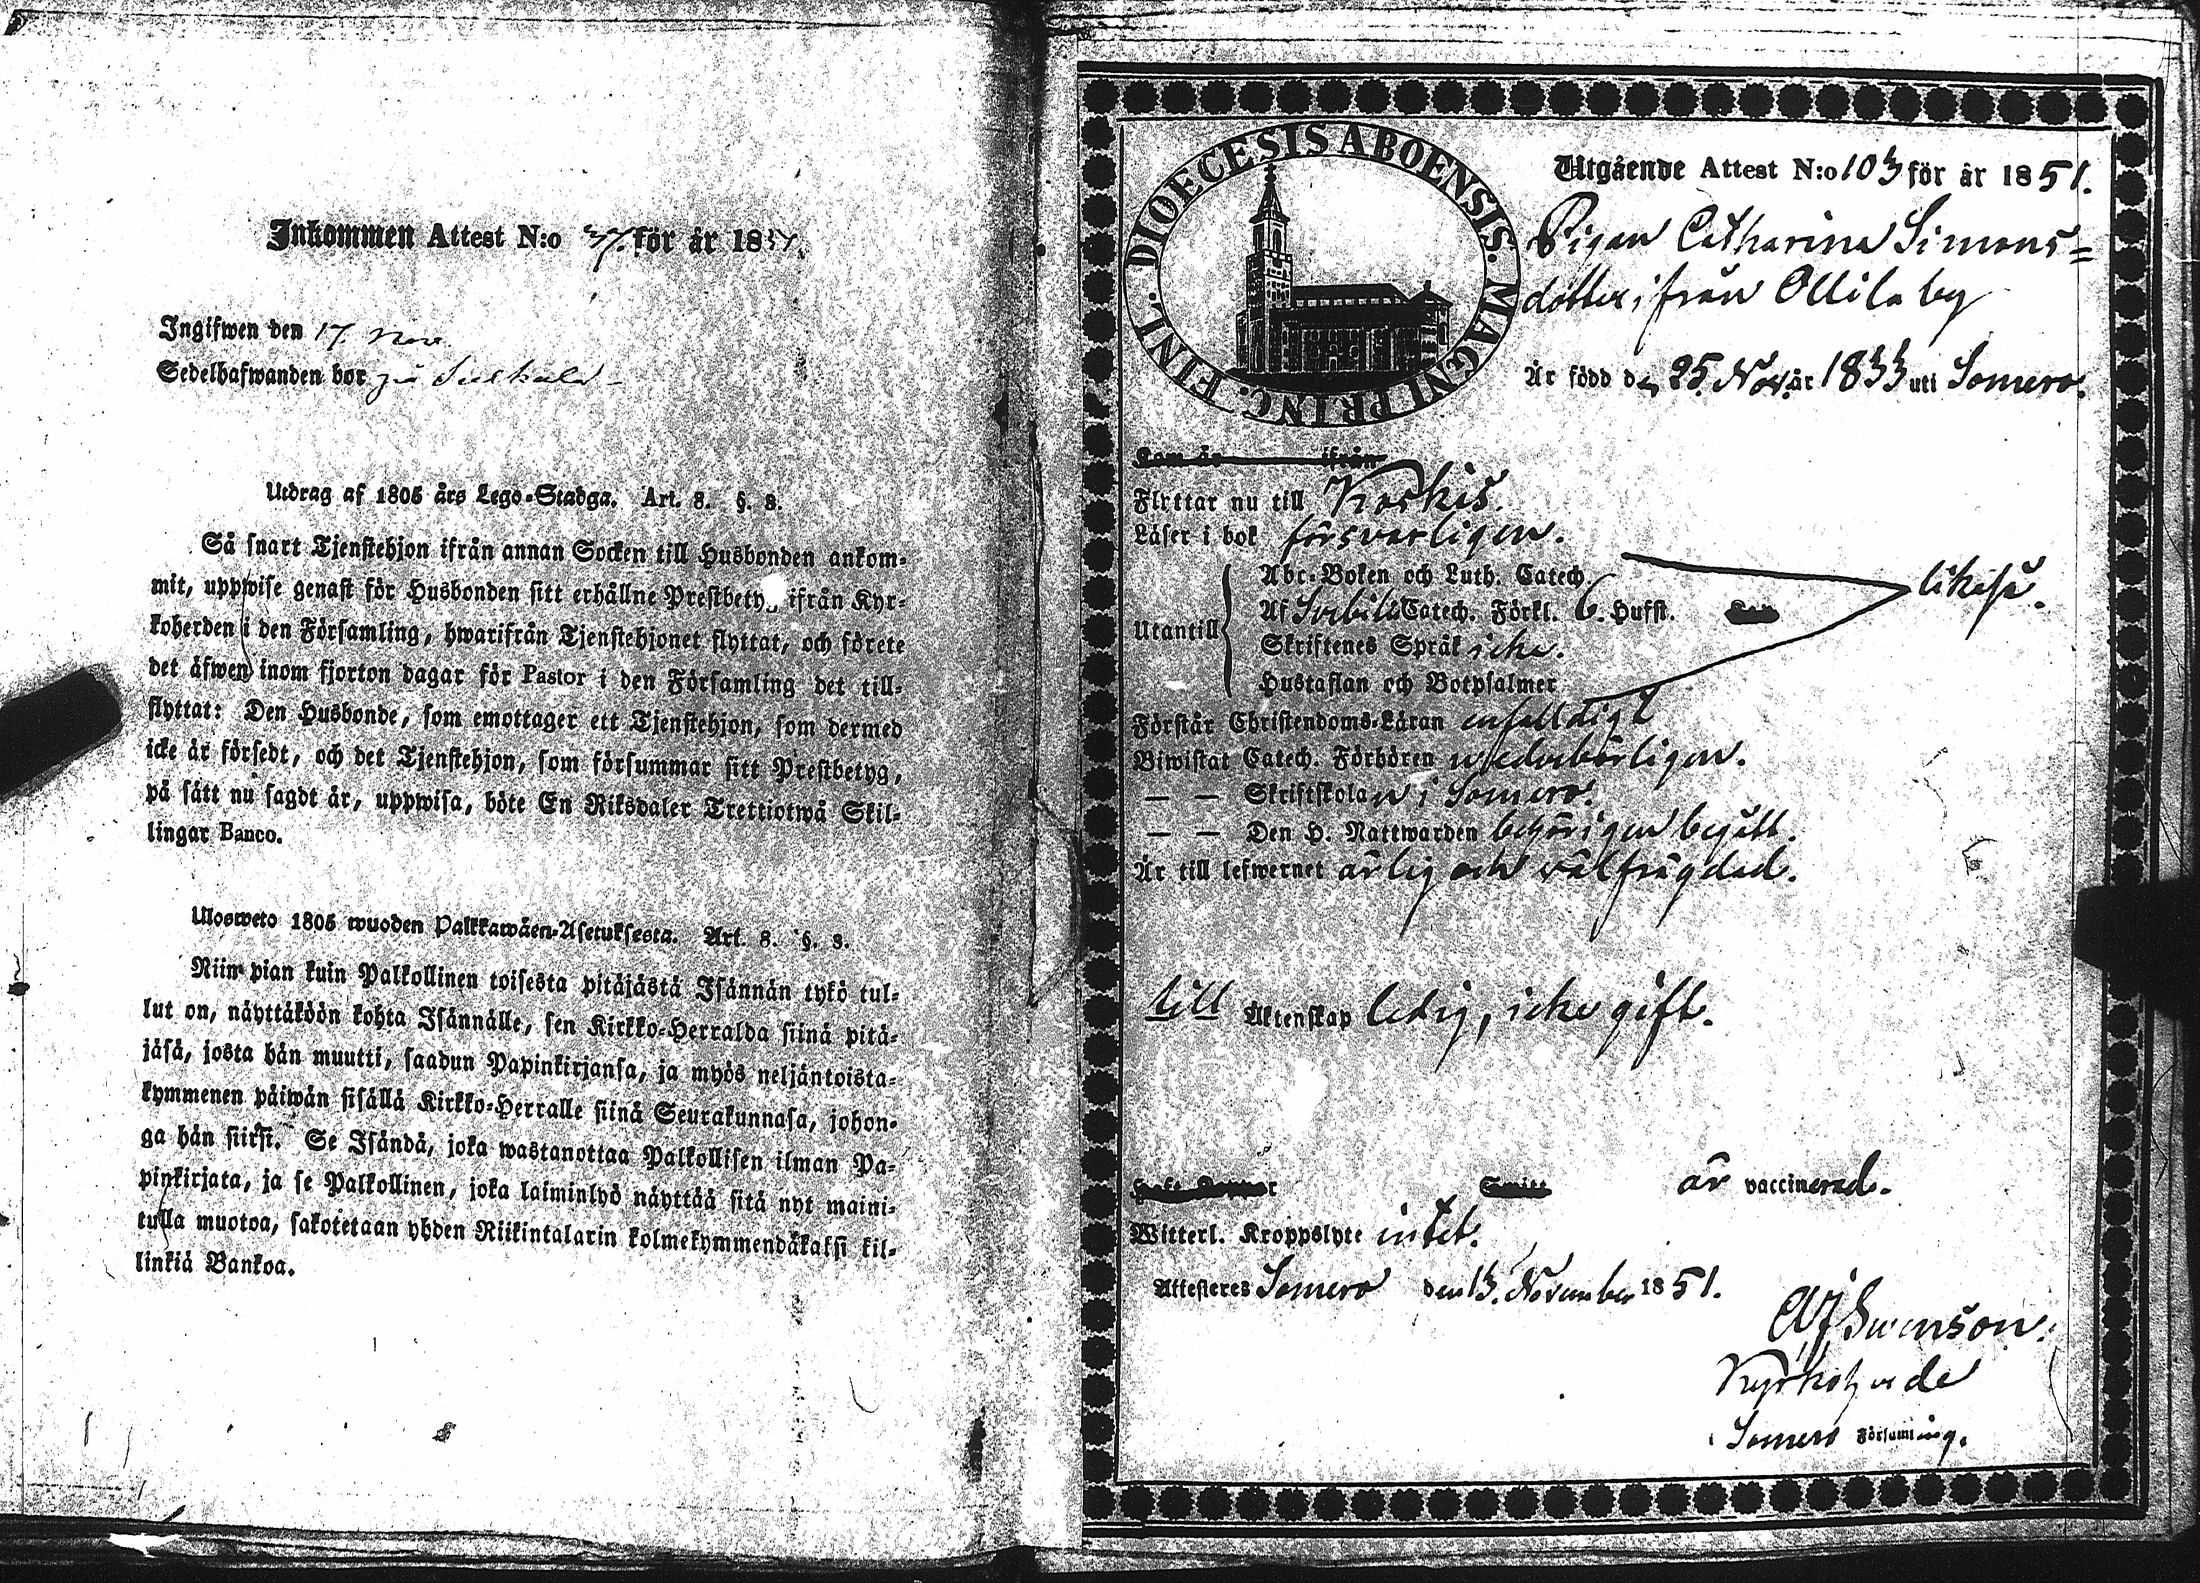 Inkommen Attest N:o 37. för år 1851.
Ingifwen den 17. Nov.
Sedelhafwanden bor på
Utdrag af 1805 års Lego-Stadga. Art. 8. §. 8.
Så snart Tjenstehjon ifrån annan Socken till Husbonden ankom-
mit, uppwise genast för Husbonden sitt erhållne Prestbetyg ifrån Kyr-
koherden i den Församling, hwarifrån Tjenstehjonet flyttat, och förete
det äfwen inom fjorton dagar för Pastor i den Församling det till-
flyttat: Den Husbonde, som emottager ett Tjenstehjon, som dermed
icke är försedt, och det Tjenstehjon, som försummar sitt Prestbetyg,
på sätt nu sagdt är, uppwisa, böte En Riksdaler Trettiotwå Skil-
lingar Banco.
Ulosweto 1805 wuoden Palkkawäen-Asetuksesta. Art. 8. §. 8.
Niin pian kuin Palkollinen toisesta pitäjästä Isännän tykö tul-
lut on, näyttäköön kohta Isännälle, sen Kirkko-Herralda siinä pitä-
jäsä, josta hän muutti, saadun Papinkirjansa, ja myös neljäntoista-
kymmenen päiwän sisällä Kirkko-Herralle siinä Seurakunnasa, johon-
ga hän siirsi. Se Isändä, joka wastanottaa Palkollisen ilman Pa-
pinkirjata, ja se Palkollinen, joka laiminlyö näyttää sitä nyt maini-
tulla muotoa, sakotetaan yhden Riikintalarin kolmekymmendäkaksi kil-
linkiä Bankoa.
DIOECESIS ABOENSIS. MAGNI PRINC. FINL.
Utgående Attest N:o 103 för år 1851.
Pigan Catharina Simons=
dotter ifrån Ollila by
Är född den 25. Nov. år 1833 uti Somero.
Kom år ifrån
Flyttar nu till Koskis.
Läser i bok försvarligen.
Utantill
Abc-Boken och Luth. Catech.
Af Svebilii Catech. Förkl. 6. Hufst.
Skriftenes Språk icke.
Hustaflan och Botpsalmer
likaså.
Förstår Christendoms-Läran enfaldigt
Biwistat Catech. Förhören wederbörligen.
— — Skriftskolan i Somero.
— — Den H. Nattwarden behörigen begått.
Är till lefwernet ärlig och välfrägdad.
till Äktenskap ledig, icke gift.
är vaccinerad.
Witterl. Kroppslyte intet.
Attesteres Somero den 13. November 1851.
Swenson.
Kyrkoherde
Somero Församling.